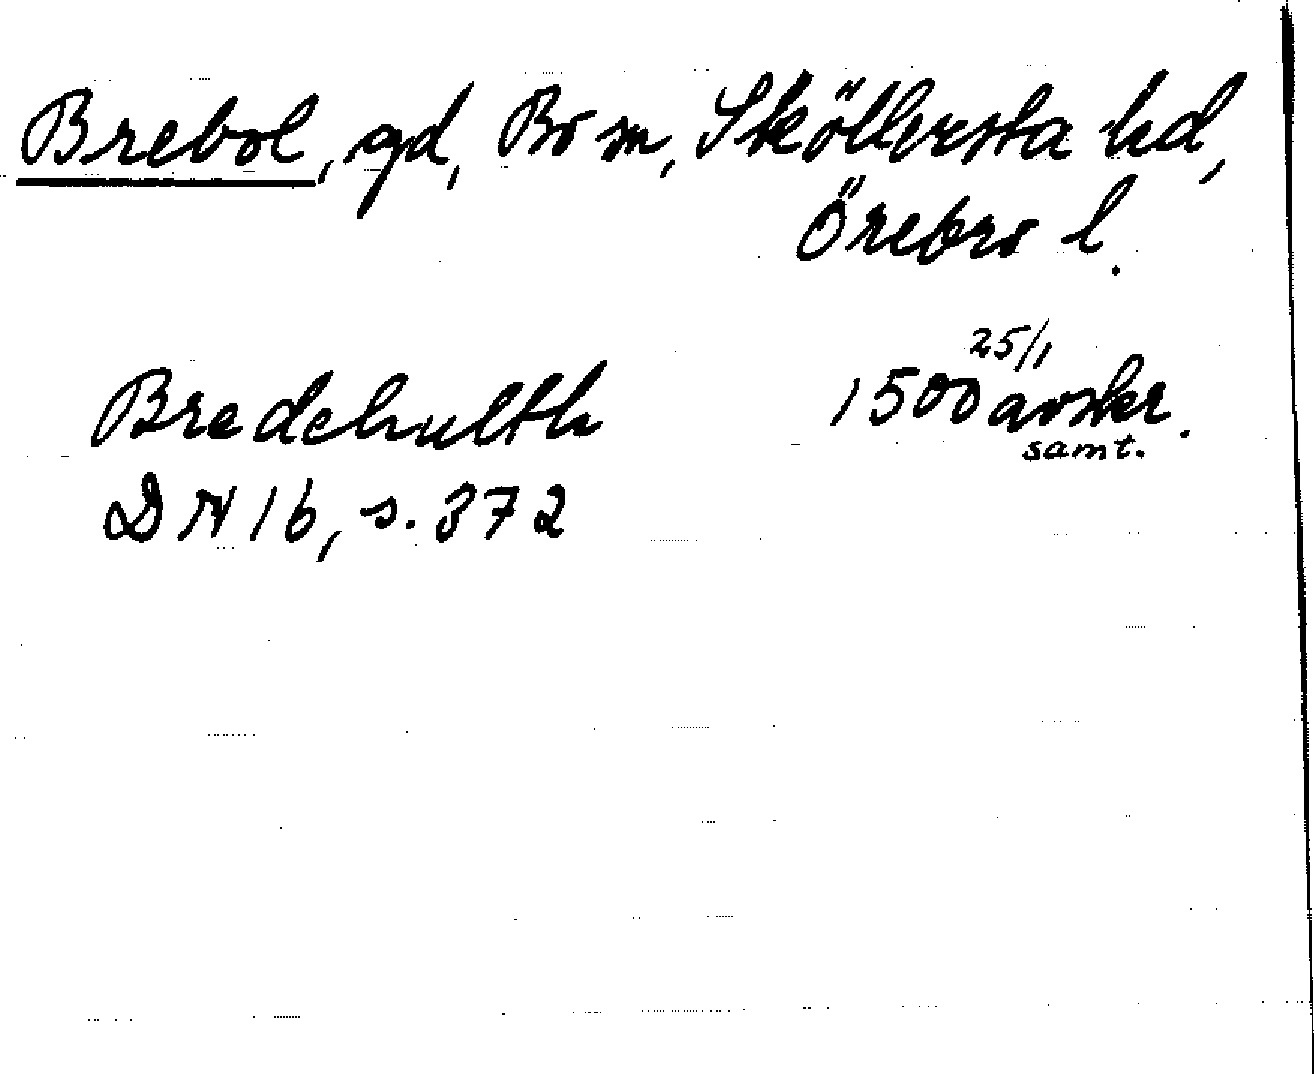 Brebol, gd, Bo sn, Sköllersta hd,
Örebro l.
25/1
Bredehulth 1500 avskr.
samt.
DN 16, s. 372